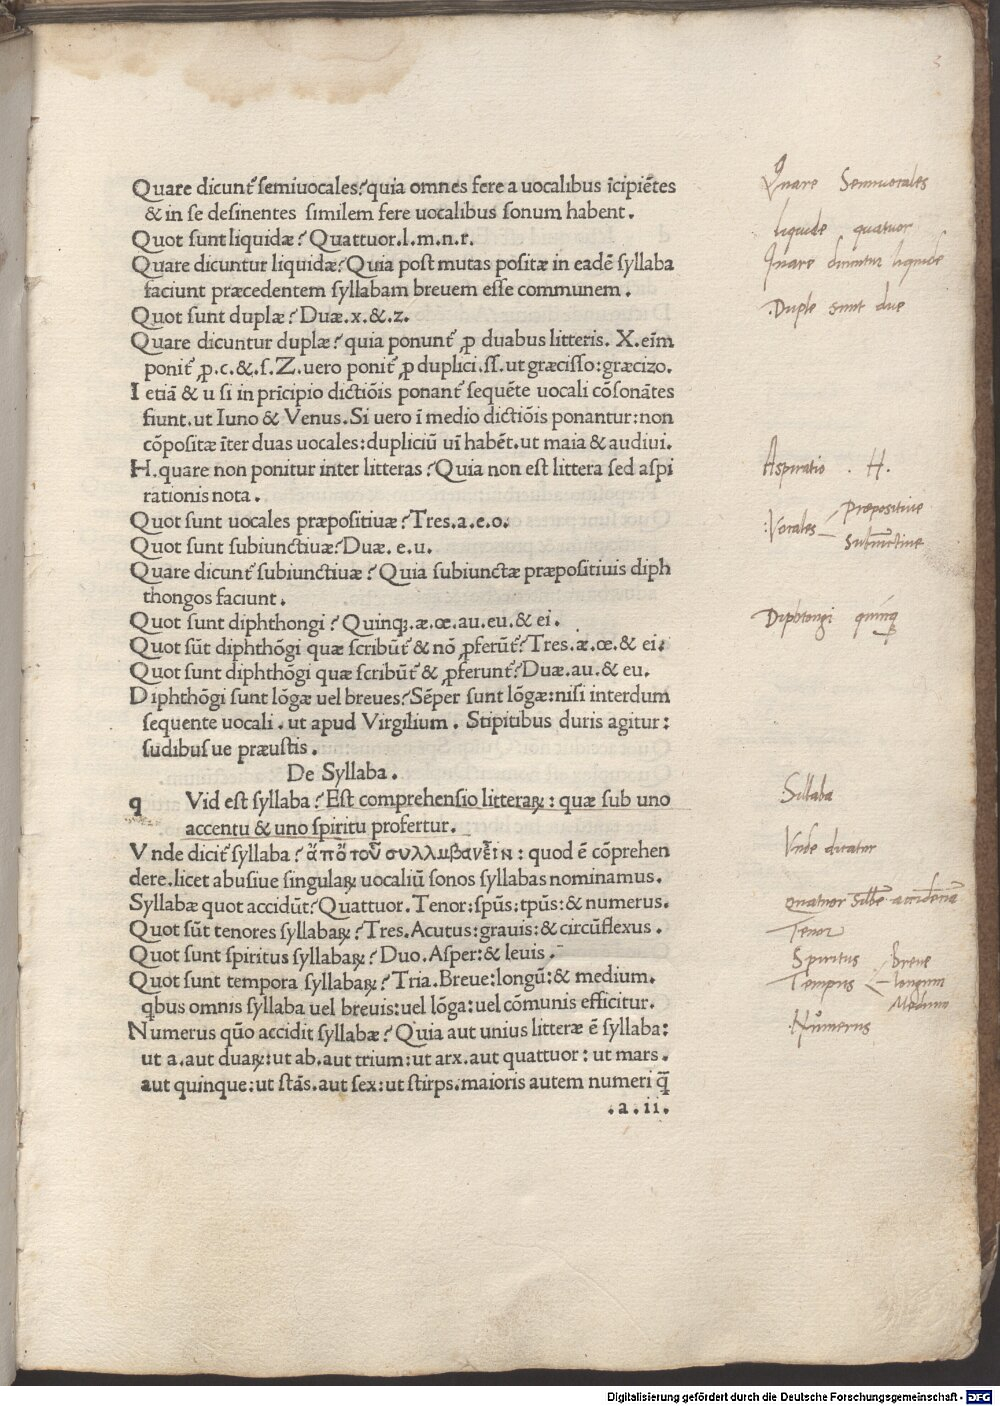 3
Quare dicunt᷑ ſemiuocales? quia omnes fere a uocalibus īcipiētes
& in ſe deſinentes ſimilem fere uocalibus ſonum habent.
Quot ſunt liquidæ? Quattuor.l.m.n.r.
Quare dicuntur liquidæ? Quia poſt mutas poſitæ in eadē ſyllaba
faciunt præcedentem ſyllabam breuem eſſe communem.
Quot ſunt duplæ? Duæ.x.&.z.
Quare dicuntur duplæ? quia ponunt᷑ ꝓ duabus litteris. X.eīm
ponit᷑ ꝓ.c.&.ſ.Z.uero ponit᷑ ꝓ duplici.ſſ.ut græciſſo:græcizo.
I etiā & u ſi in prīcipio dictiōis ponant᷑ ſequēte uocali cōſonātes
fiunt.ut Iuno & Venus.Si uero ī medio dictiōis ponantur:non
cōpoſitæ īter duas uocales:dupliciū uī habēt.ut maia & audiui.
H.quare non ponitur inter litteras? Quia non eſt littera ſed aſpi
rationis nota.
Quot ſunt uocales præpoſitiuæ? Tres.a.e.o.
Quot ſunt ſubiunctiuæ? Duæ. e.u.
Quare dicunt᷑ ſubiunctiuæ? Quia ſubiunctæ præpoſitiuis diph
thongos faciunt.
Quot ſunt diphthongi? Quinqꝫ.æ.œ.au.eu.& ei.
Quot ſūt diphthōgi quæ ſcribūt᷑ & nō ꝓferūt᷑? Tres.æ.œ.& ei.
Quot ſunt diphthōgi quæ ſcribūt᷑ & ꝓferunt᷑? Duæ.au.& eu.
Diphthōgi ſunt lōgæ uel breues? Sēper ſunt lōgæ:niſi interdum
ſequente uocali.ut apud Virgilium. Stipitibus duris agitur:
ſudibuſ ue præuſtis.
De Syllaba.
q Vid eſt ſyllaba? Eſt comprehenſio litteraꝝ: quæ ſub uno
accentu & uno ſpiritu profertur.
Vnde dicit᷑ ſyllaba? ἄπὄ τοῦ συλλμβανεῖιν: quod ē cōprehen
dere.licet abuſiue ſingulaꝝ uocaliū ſonos ſyllabas nominamus.
Syllabæ quot accidūt? Quattuor. Tenor:ſpūs:tpūs:& numerus.
Quot ſūt tenores ſyllabaꝝ? Tres.Acutus:grauis:& circūflexus.
Quot ſunt ſpiritus ſyllabaꝝ? Duo.Aſper:& leuis.
Quot ſunt tempora ſyllabaꝝ? Tria.Breue:longū:& medium.
qbus omnis ſyllaba uel breuis:uel lōga:uel cōmunis efficitur.
Numerus quō accidit ſyllabæ? Quia aut unius litteræ ē ſyllaba:
ut a.aut duaꝝ:ut ab.aut trium:ut arx.aut quattuor: ut mars.
aut quinque:ut ſtās.aut ſex:ut ſtirps.maioris autem numeri q̄
.a.ii.
Quare Semiuocales
liquide quatuor
Quare dicuntur liquide
Duple sunt due
Aspiratio . H.
Vocales
Præpositiue
Subiunctiue
Diphtongi quinqꝫ
Sillaba
Vnde dicatur
quatuor sillabæ accidentia
Tenor
Spiritus
Tempus
breue
longum
Medium
Numerus
Digitalisierung gefördert durch die Deutsche Forschungsgemeinschaft - DFG